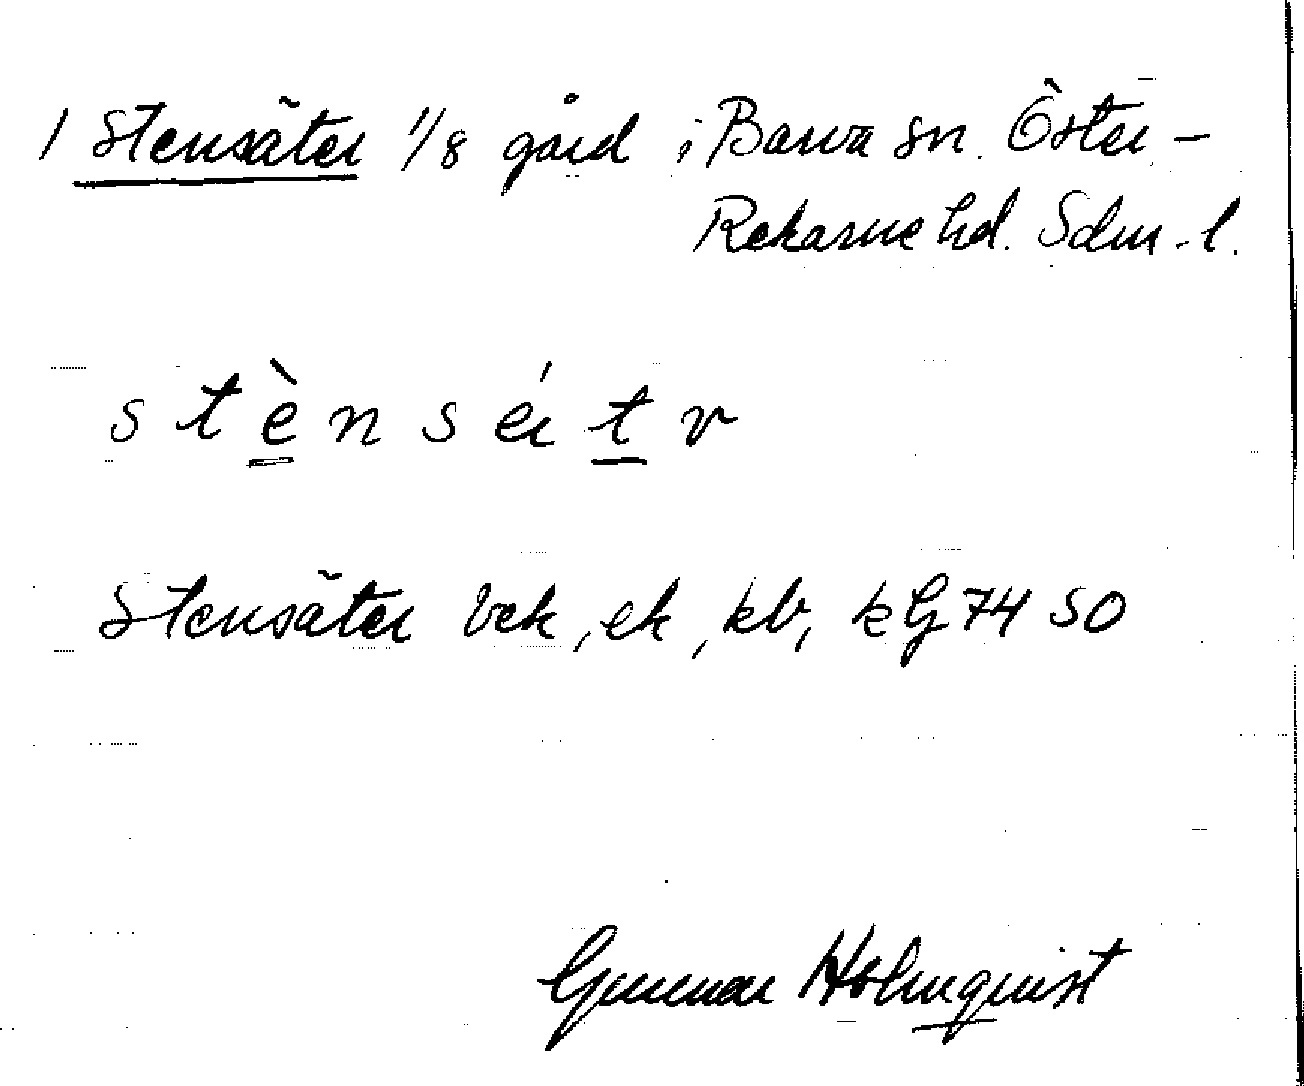 1 Stensäter 1/8 gård i Barva sn. Öster-
Rekarne hd. Sdm-l.
stènsétr
Stensäter bek, ek, kb, kG 74 SO
Gunnar Holmquist